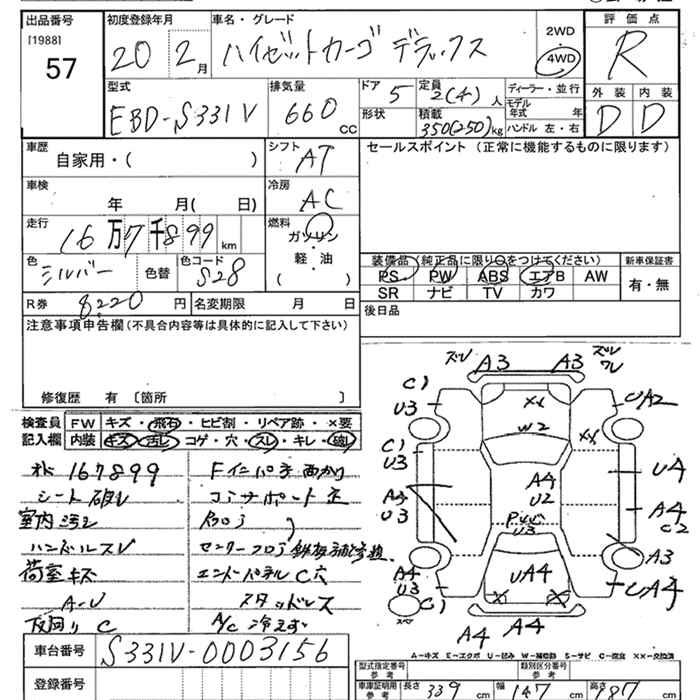 出品番号 初度登録年月 車名・グレード 評価点
[1988] 57 20 2月 ハイゼットカーゴ デラックス 2WD 4WD R
型式 排気量 ドア 5 定員 2(4)人 ディーラー・並行 外装 内装
EBD-S331V 660 CC 形状 積載 350(250)kg モデル年式 年 ハンドル 左・右 D D
車歴 シフト AT セールスポイント (正常に機能するものに限ります)
自家用・( )
車検 冷房 AC
年 月( 日)
走行 燃料
16万7千899km ガソリン・軽・油
色 シルバー 色替 色コード S28 ( )
装備品(純正品に限り○をつけてください) 新車保証書
PS PW ABS エアB AW 有・無
SR ナビ TV カワ
R券 8220円 名変期限 月 日 後日品
注意事項申告欄(不具合内容等は具体的に記入して下さい)
修復歴 有 〔箇所 〕
検査員記入欄 FW キズ・飛石・ヒビ割・リペア跡・×要
内装 キズ・汚レ・コゲ・穴・スレ・キレ・破レ
167899
シート破レ
室内汚レ
ハンドルスレ
荷室キズ
A・U
下回り C
コアサポート
センターフロア
エンドパネルC穴
スタッドレス
A/C冷えず
ズレ A3 A3 ズレ ワレ
C1 U3 XX UA2
W2 XX
C1 U3 A4 U2 U4
A4 U3 A4 C2
U3 A3
A4 U3 UA4 UA4
C1
A4 A4
A-キズ E-エクボ U-凹み W-補修跡 S-サビ C-腐食 XX-交換済
車台番号 S331V-0003156
型式指定番号 参考 類別区分番号 参考
登録番号 車庫証明用 参考 長さ 339cm 幅 147cm 高さ 187cm